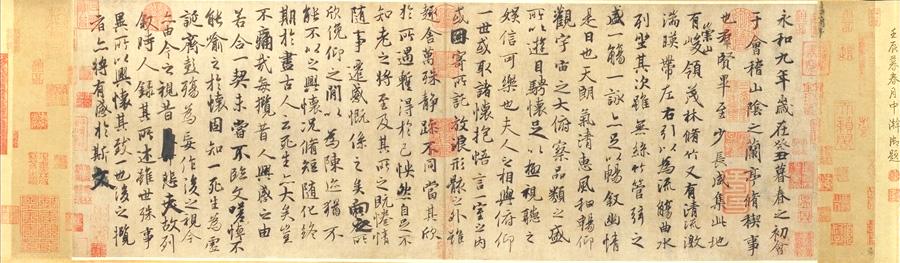 壬辰暮春月中澣御題
永和九年歲在癸丑暮春之初會
于會稽山陰之蘭亭脩稧事
也羣賢畢至少長咸集此地
有崇山峻領茂林脩竹又有清流激
湍暎帶左右引以為流觴曲水
列坐其次雖無絲竹管弦之
盛一觴一詠亦足以暢敘幽情
是日也天朗氣清惠風和暢仰
觀宇宙之大俯察品類之盛
所以遊目騁懷足以極視聽之
娛信可樂也夫人之相與俯仰
一世或取諸懷抱悟言一室之內
或因寄所託放浪形骸之外雖
趣舍萬殊靜躁不同當其欣
於所遇暫得於己怏然自足不
知老之將至及其所之既惓情
隨事遷感慨係之矣向之所
欣俛仰之閒以為陳迹猶不
能不以之興懷況脩短隨化終
期於盡古人云死生亦大矣豈
不痛哉每攬昔人興感之由
若合一契未嘗不臨文嗟悼不
能喻之於懷固知一死生為虛
誕齊彭殤為妄作後之視今
亦由今之視昔悲夫故列
敘時人錄其所述雖世殊事
異所以興懷其致一也後之攬
者亦將有感於斯文